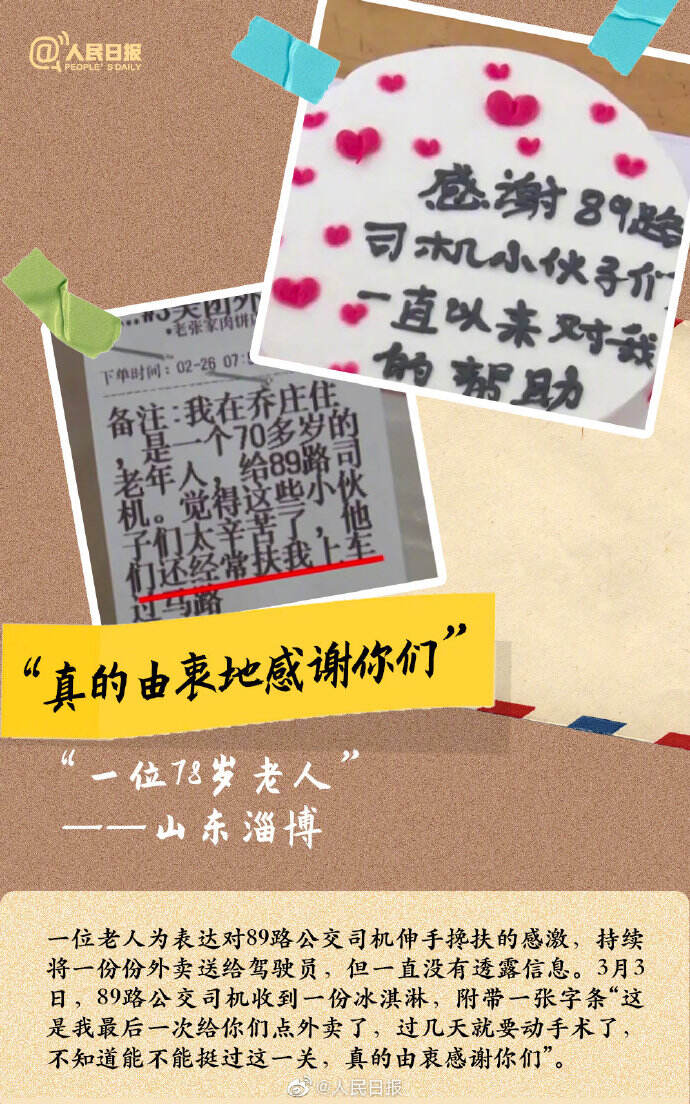 @人民日报
PEOPLE'S DAILY
感谢89路
司机小伙子们
一直以来对我
的帮助
...#3美团外
老张家肉饼
下单时间：02-26 07:
备注：我在乔庄住
，是一个70多岁的
老年人，给89路司
机。觉得这些小伙
子们太辛苦了，他
们还经常扶我上车
过马路
“真的由衷地感谢你们”
“一位78岁老人”
——山东淄博
一位老人为表达对89路公交司机伸手搀扶的感激，持续
将一份份外卖送给驾驶员，但一直没有透露信息。3月3
日，89路公交司机收到一份冰淇淋，附带一张字条“这
是我最后一次给你们点外卖了，过几天就要动手术了，
不知道能不能挺过这一关，真的由衷感谢你们”。
@人民日报